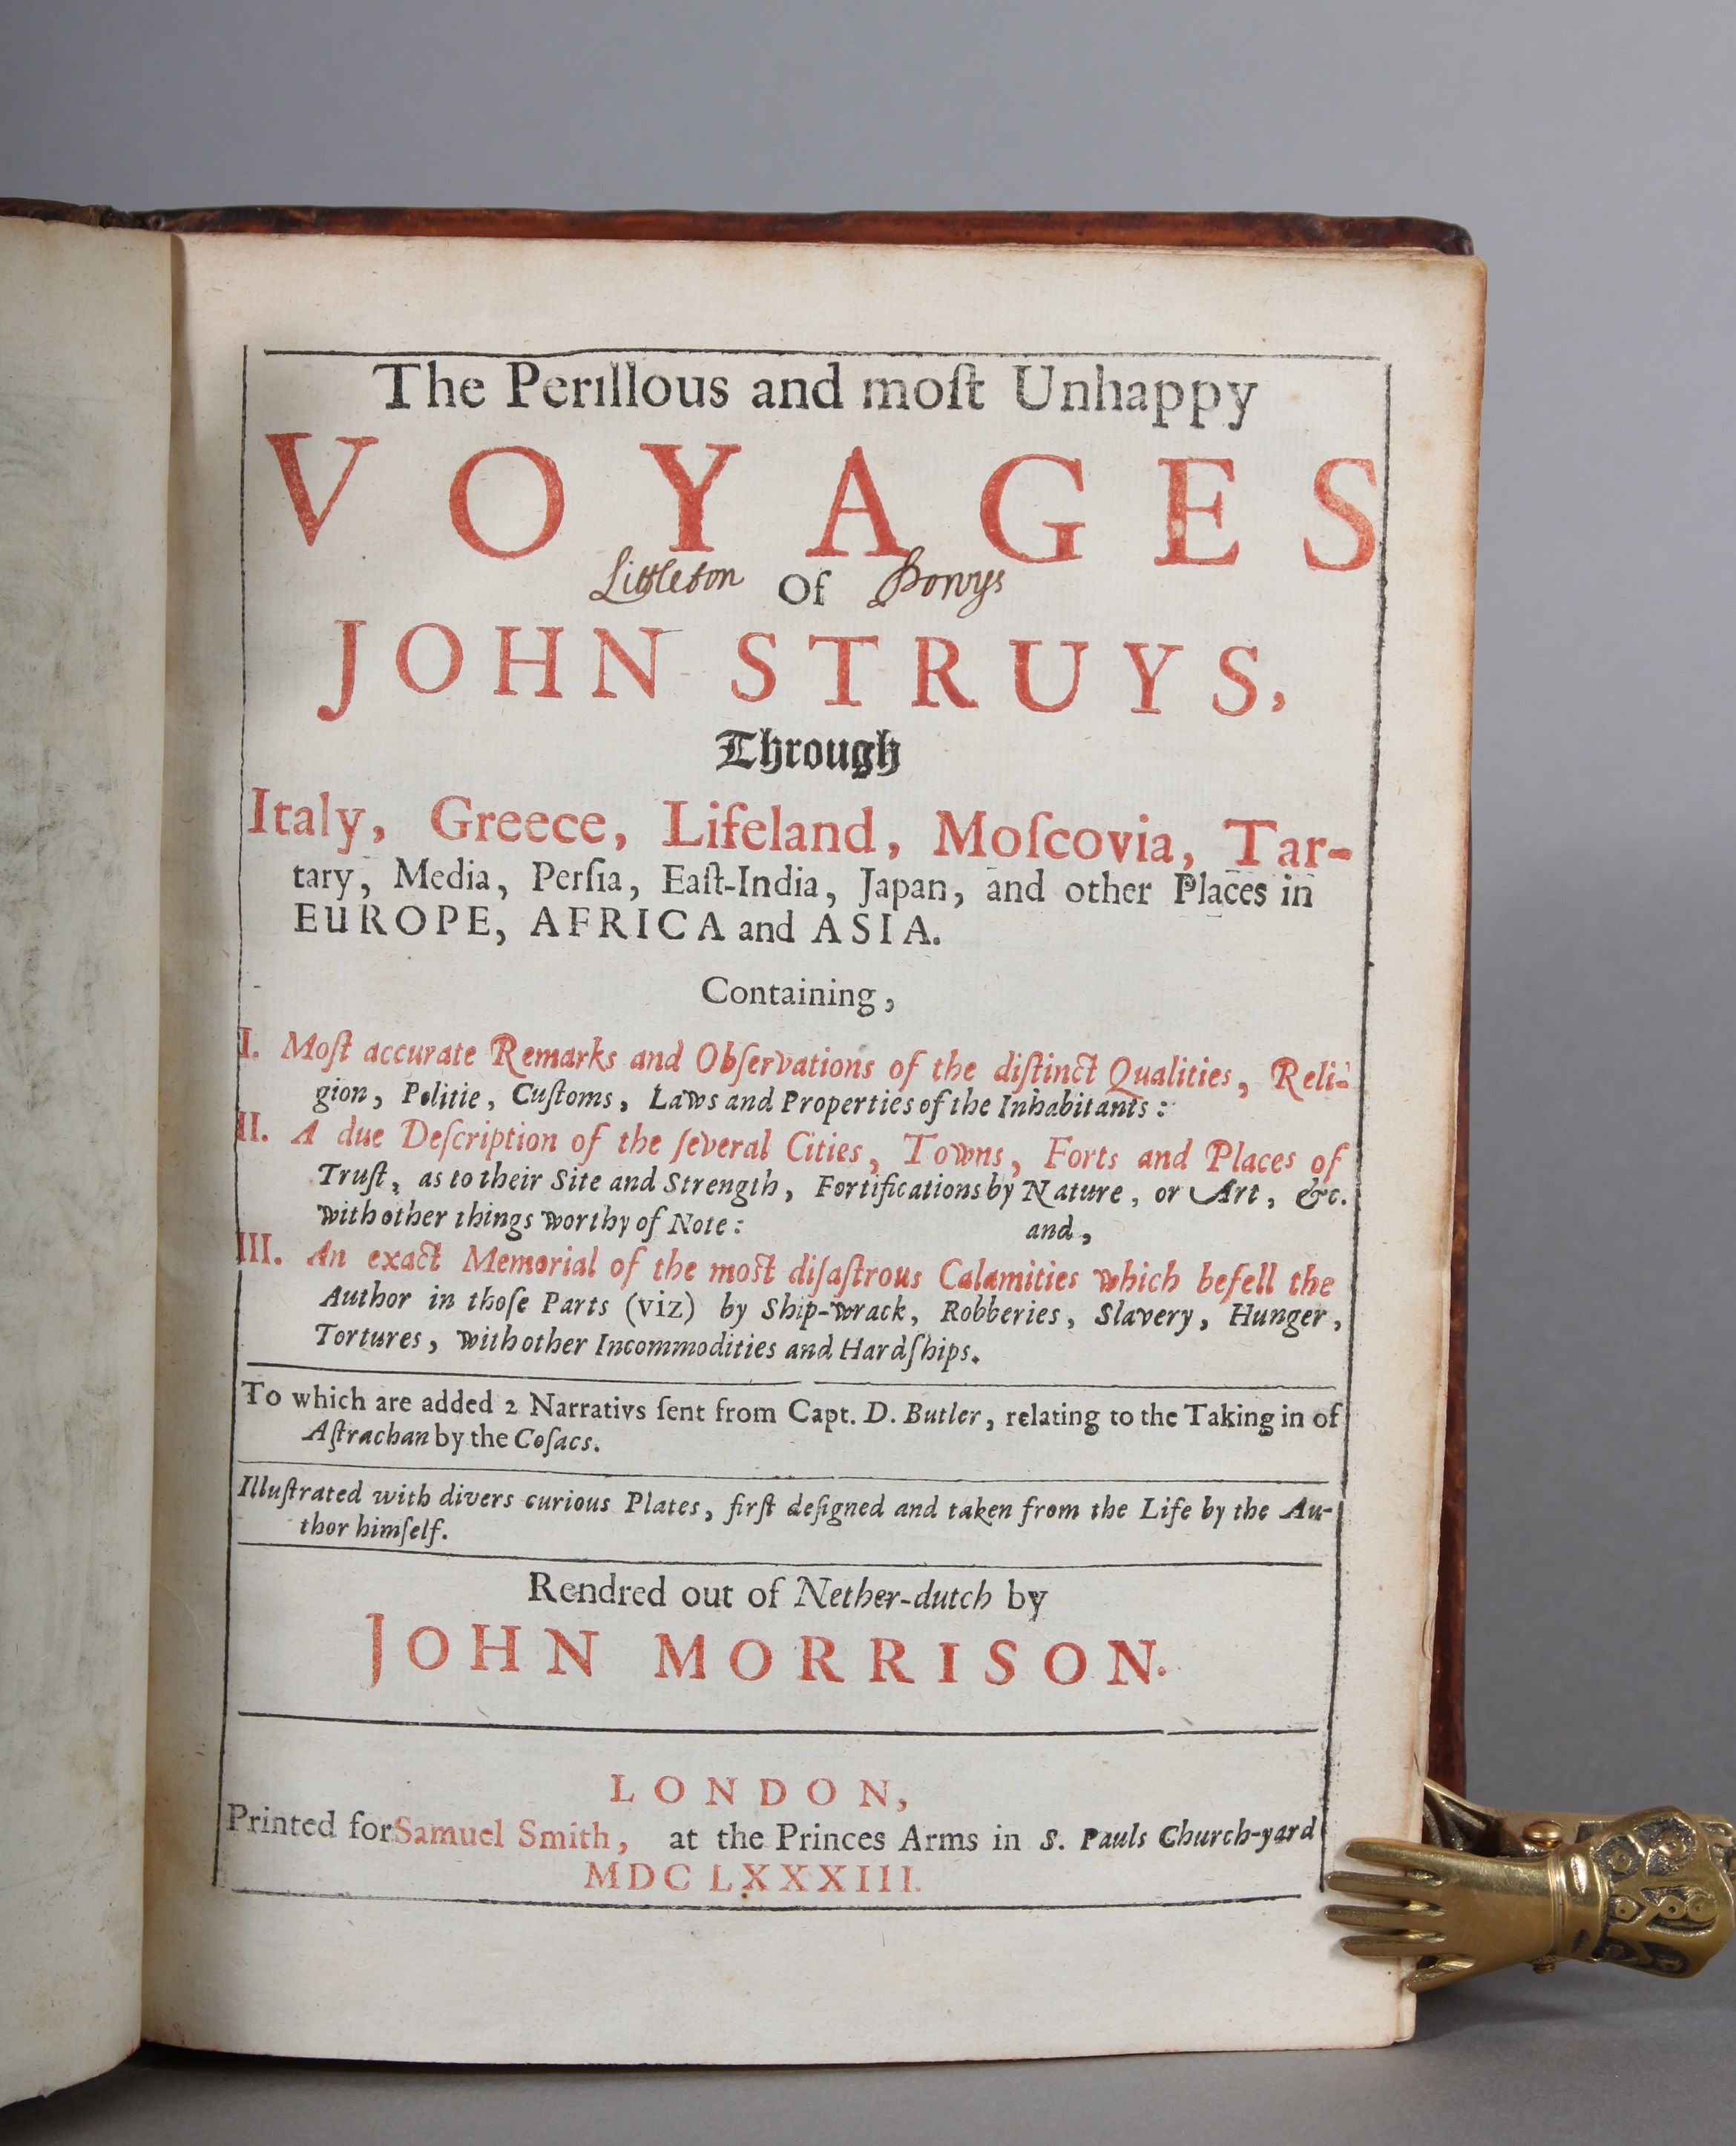 The Perillous and moſt Unhappy
VOYAGES
Littleton Of Powys
JOHN STRUYS,
Through
Italy, Greece, Lifeland, Moſcovia, Tar-
tary, Media, Perſia, Eaſt-India, Japan, and other Places in
EUROPE, AFRICA and ASIA.
Containing,
I. Moſt accurate Remarks and Obſervations of the diſtinct Qualities, Reli-
gion, Politie, Cuſtoms, Laws and Properties of the Inhabitants:
II. A due Deſcription of the ſeveral Cities, Towns, Forts and Places of
Truſt, as to their Site and Strength, Fortifications by Nature, or Art, &c.
with other things worthy of Note: and,
III. An exact Memorial of the moſt diſaſtrous Calamities which befell the
Author in thoſe Parts (viz) by Ship-wrack, Robberies, Slavery, Hunger,
Tortures, with other Incommodities and Hardſhips.
To which are added 2 Narrativs ſent from Capt. D. Butler, relating to the Taking in of
Aſtrachan by the Coſacs.
Illuſtrated with divers curious Plates, firſt deſigned and taken from the Life by the Au-
thor himſelf.
Rendred out of Nether-dutch by
JOHN MORRISON.
LONDON,
Printed for Samuel Smith, at the Princes Arms in S. Pauls Church-yard
MDCLXXXIII.